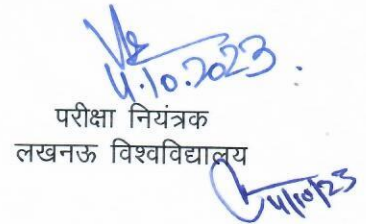 4.10.2023.
परीक्षा नियंत्रक
लखनऊ विश्वविद्यालय
4/10/23